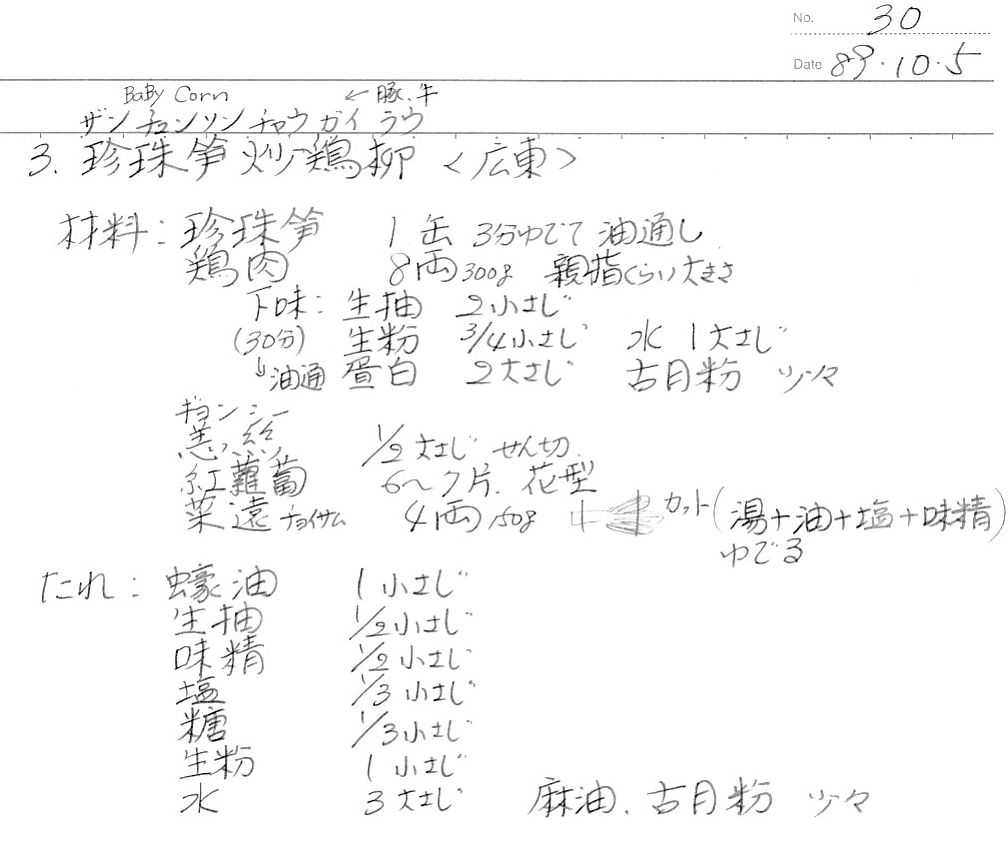 No. 30
Date 89.10.5
BaBy Corn ← 豚、牛
ザン チュン ソン チャウ ガイ ラウ
3. 珍珠筍炒鶏柳 <広東>
材料: 珍珠筍 1缶 3分ゆでて 油通し
鶏肉 8両300g 親指くらい大きさ
下味: 生抽 2小さじ
(30分) 生粉 3/4小さじ 水 1大さじ
↓油通 蛋白 2大さじ 古月粉 少々
ギョンシー
姜絲 1/2大さじ せん切.
紅蘿蔔 6〜7片. 花型
菜遠 チョイサム 4両150g カット(湯+油+塩+味精)
ゆでる
たれ: 蠔油 1小さじ
生抽 1/2小さじ
味精 1/2小さじ
塩 1/3小さじ
糖 1/3小さじ
生粉 1小さじ
水 3大さじ 麻油、古月粉 少々